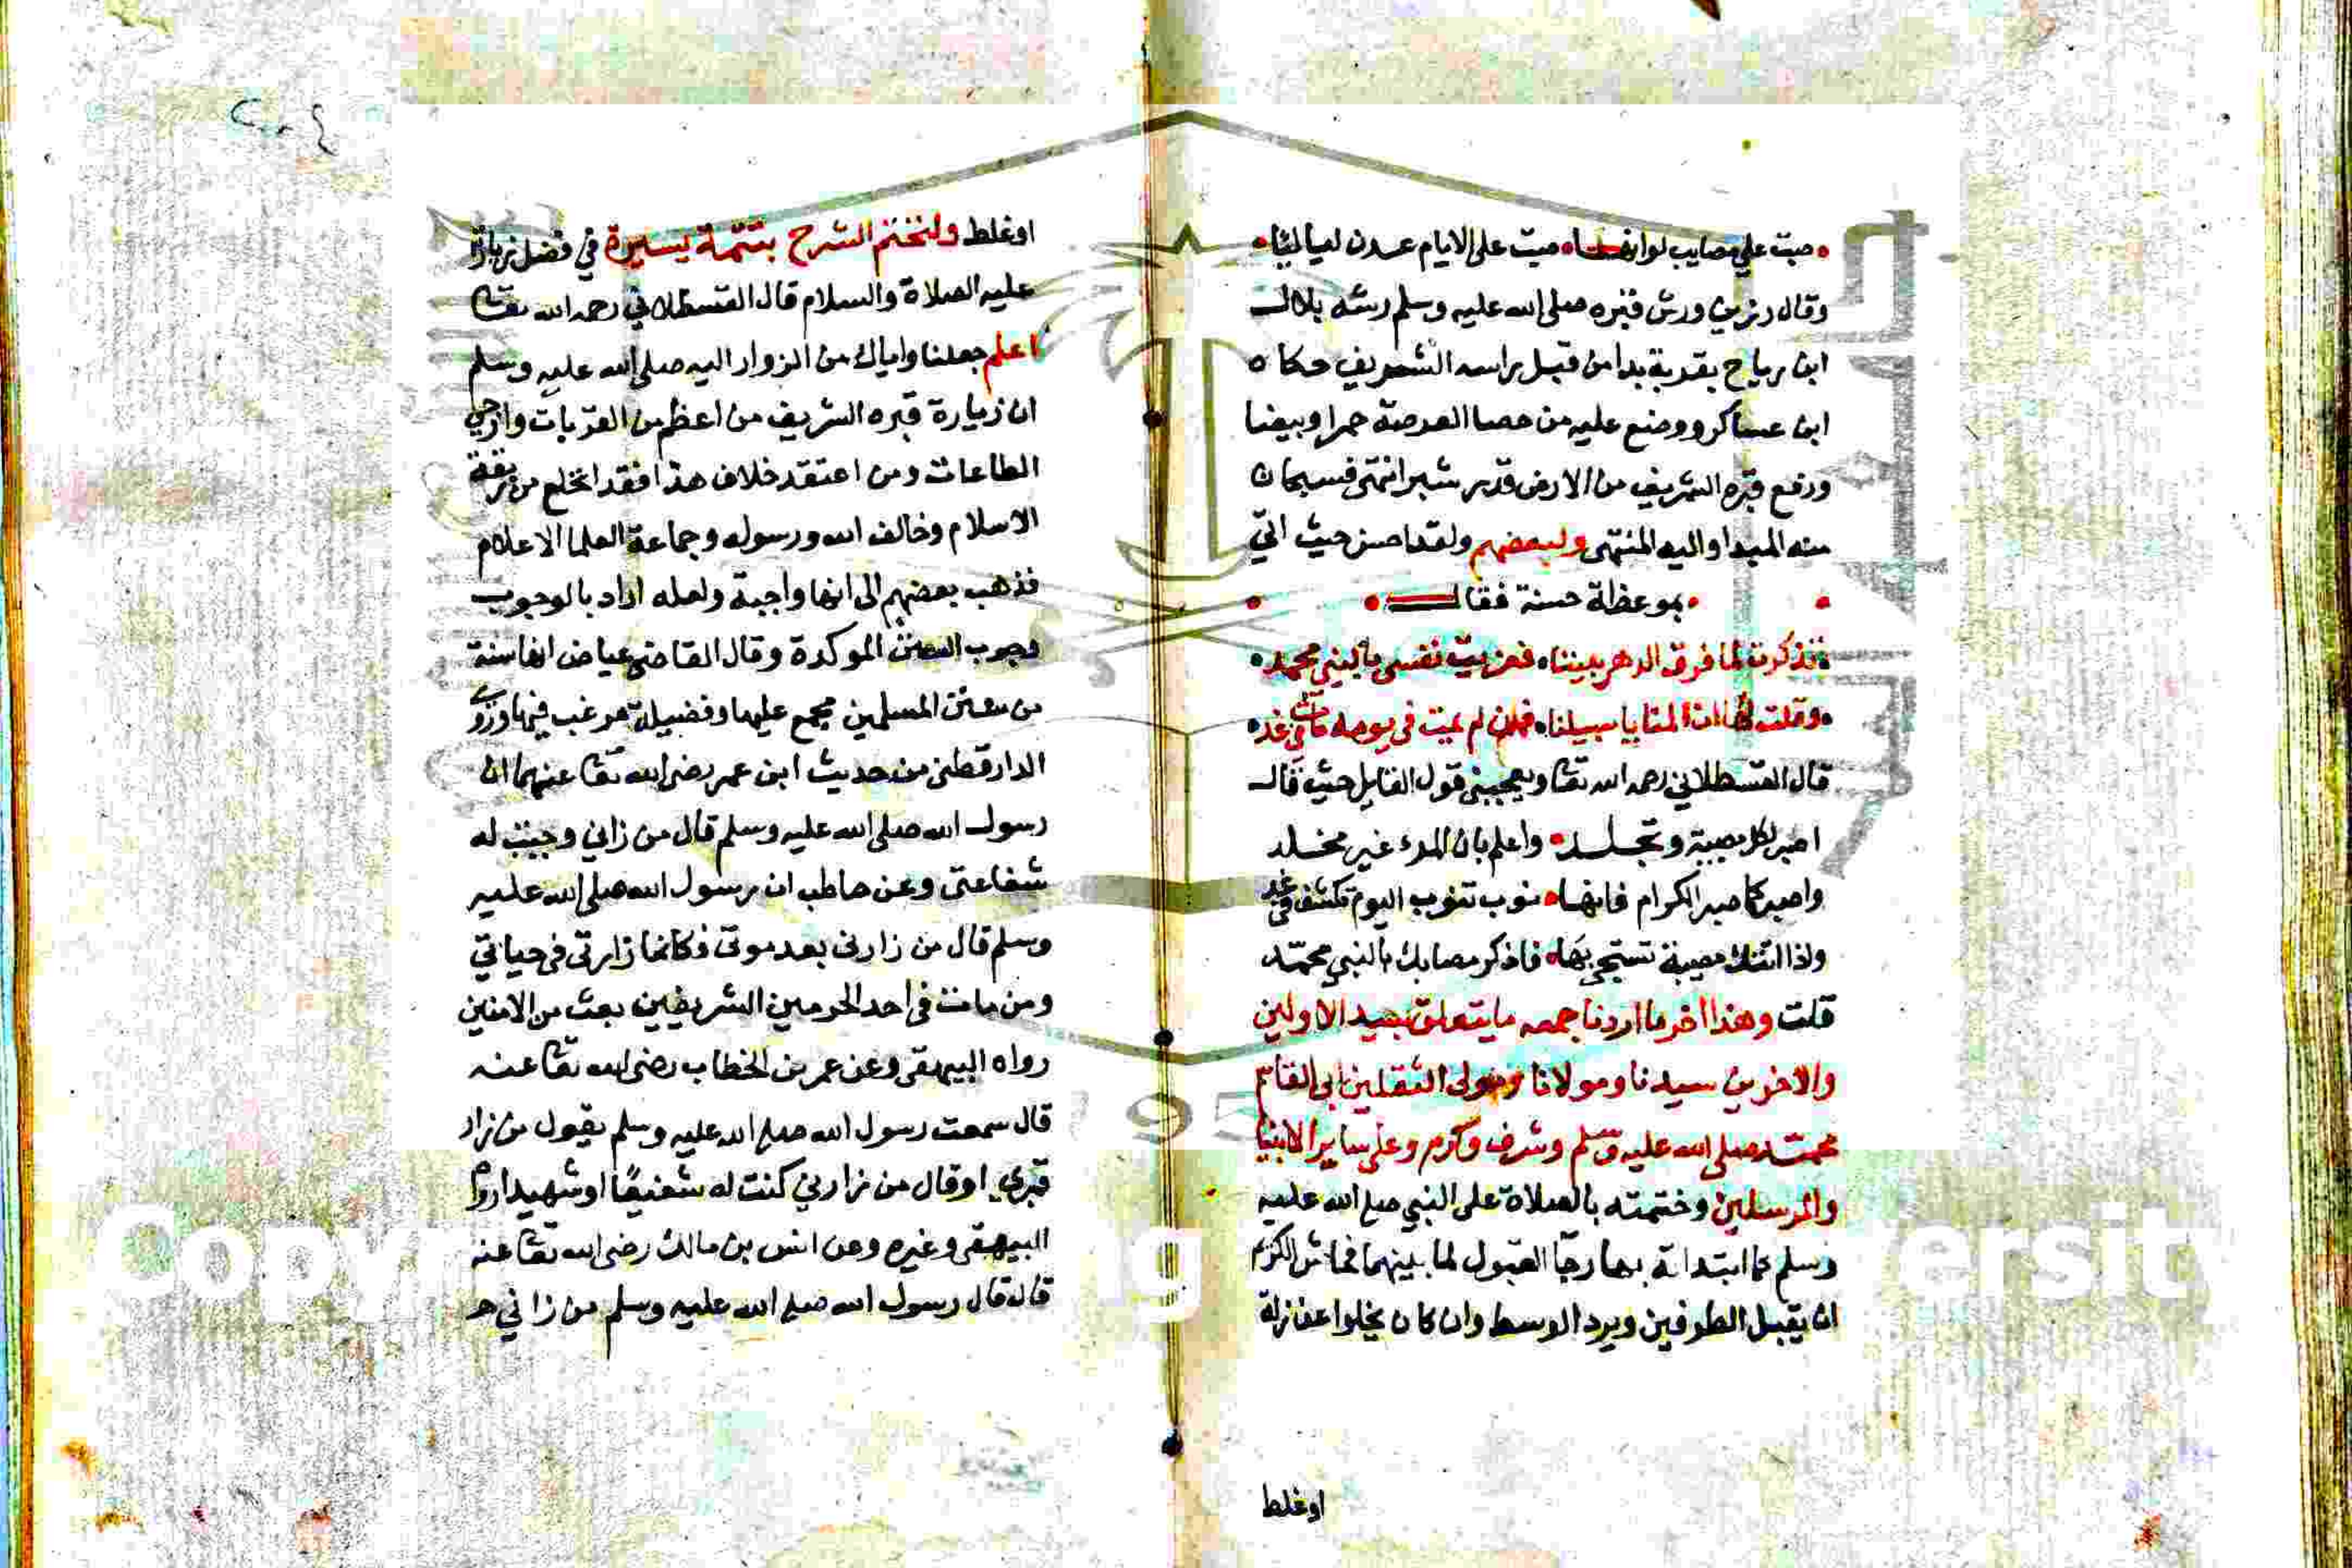 صبت علي مصايب لو انها صبت على الايام عدن لياليا
وقال رزين ورش قبره صلى الله عليه وسلم رشه بلال
ابن رباح بقربة بدا من قبل راسه الشريف حكاه
ابن عساكر ووضع عليه من حصا العرصة حمرا وبيضا
ورفع قبره الشريف من الارض قدر شبر انتهى فسبحان
منه المبدا واليه المنتهى ولبعضهم ولقد احسن حيث اتى
بموعظة حسنة فقال
تذكرت لما فرق الدهر بيننا فعزيت نفسي بالنبي محمد
وقلت لها ان المنايا سبيلنا فمن لم يمت في يومه مات في غد
قال القسطلاني رحمه الله تعا ويعجبني قول القايل حيث قال
اصبر لكل مصيبة وتجلد واعلم بان المرء غير مخلد
واصبر كما صبر الكرام فانها نوب تنوب اليوم تكشف في غد
واذا اتتك مصيبة تشجى بها فاذكر مصابك بالنبي محمد
قلت وهذا اخر ما اردنا جمعه ما يتعلق بسيد الاولين
والاخرين سيدنا ومولانا ومولى الثقلين ابي القاسم
محمد صلى الله عليه وسلم وشرف وكرم وعلى ساير الانبيا
والمرسلين وختمته بالصلاة على النبي صلى الله عليه
وسلم كما ابتداته بها رجا القبول لما بينهما فحاش الكريم
ان يقبل الطرفين ويرد الوسط وان كان يخلوا عن زلة
اوغلط
اوغلط ولنختم الشرح بتتمة يسيرة في فضل زيارة
عليه الصلاة والسلام قال القسطلاني رحمه الله تعا
اعلم جعلنا واياك من الزوار اليه صلى الله عليه وسلم
ان زيارة قبره الشريف من اعظم القربات وارجى
الطاعات ومن اعتقد خلاف هذا فقد انخلع من ربقة
الاسلام وخالف الله ورسوله وجماعة العلما الاعلام
فذهب بعضهم الى انها واجبة ولعله اراد بالوجوب
وجوب السنن الموكدة وقال القاضي عياض انها سنة
من سنن المسلمين مجمع عليها وفضيلة مرغب فيها وروى
الدارقطني من حديث ابن عمر رضى الله تعا عنهما ان
رسول الله صلى الله عليه وسلم قال من زاني وجبت له
شفاعتى وعن حاطب ان رسول الله صلى الله عليه
وسلم قال من زارنى بعد موتى فكانما زارنى في حياتي
ومن مات في احد الحرمين الشريفين بعث من الامنين
رواه البيهقى وعن عمر بن الخطاب رضى الله تعا عنه
قال سمعت رسول الله صلى الله عليه وسلم يقول من زار
قبرى او قال من زارني كنت له شفيعًا او شهيدا رواه
البيهقى وغيره وعن انس بن مالك رضى الله تعا عنه
قال قال رسول الله صلى الله عليه وسلم من زاني